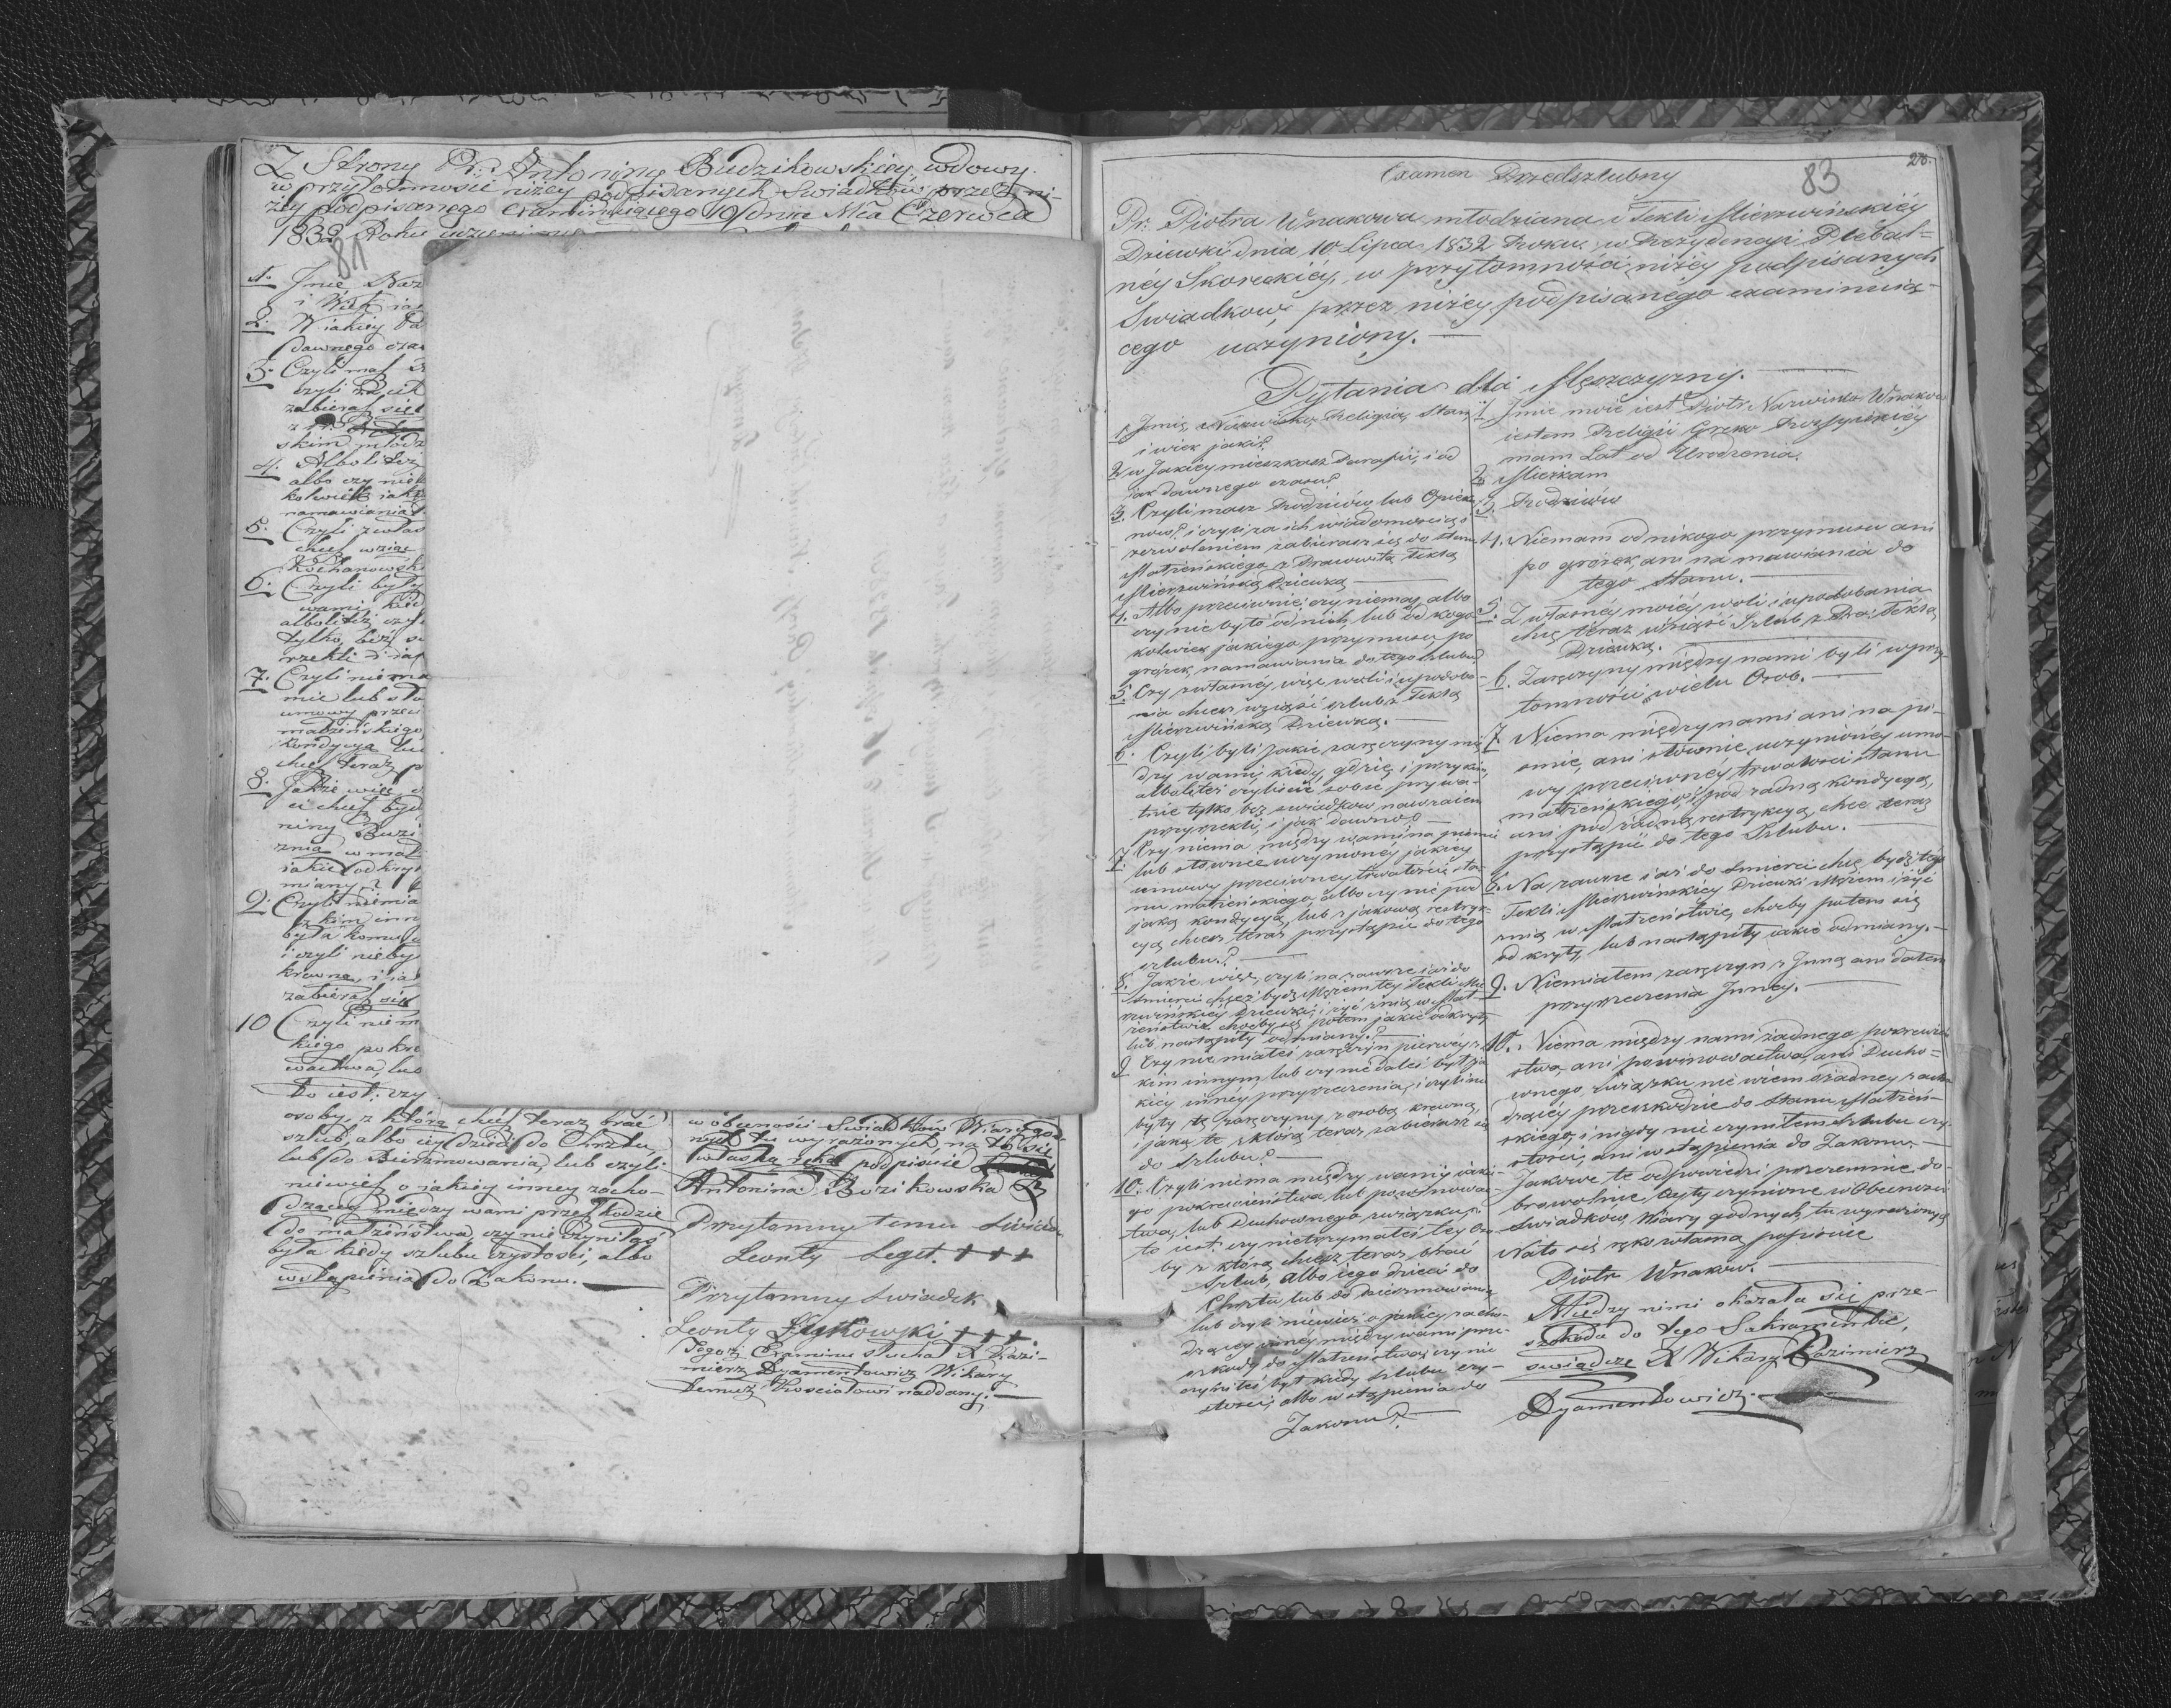 Z Strony Pr: Antoniny Budzikowskiey, wdowy
w przytomności niżey podpisanych Swiadków przez ni-
żey podpisanego examinuiącego 19 dnia Mca Czerwca
1832 Roku
81
1. Jmie Naz
i Wiek iak
2. W iakiey Pa
dawnego czas
3. Czyli masz
czyli za ich
zabierasz się
skim młodz
4. Albo też
albo czy nie
kolwiek iak
namawiania
5. Czyli z włas
chcesz wziąć
Kochanowsk
6. Czyli były
wami, kied
albo też, czy
tylko, bez s
rzekli i iak
7. Czyli niema
mie lub sło
umowy przeci
małżeńskiego
kondycyą lub
chcesz teraz p
8. Jakże więc
ci chcesz bydź
niny Budzi
znią w mał
iakie odkry
miany?
9. Czyli niemia
z kim inn
była komu
i czyli nieby
krewną, i ia
zabierasz się
10 Czyli niem
kiego pokre
wactwa, lub
to iest: czy
osoby, z którą chcesz teraz brać
szlub, albo iey dzieci do Chrztu,
lub do Bierzmowania, lub czyli
niewiesz o iakiey inney zacho-
dzącey między wami przeszkodzie
do małżeństwa, czy nie czyniłaś
była kiedy szlubu czystości, albo
wstąpienia do Zakonu. —
w obecności Swiadków Wiary god-
nych tu wyrażonych, na to się
własną ręką podpisuie
Antonina Budzikowska
Przytomny temu Swiadek
Leonty Leget. + + +
Przytomny Swiadek
Leonty Lutkowski + + +.
Tegoż Examinu słuchał X Kazi-
mierz Dyamentowicz Wikary
temuż Kosciołowi naddany. —
28.
83
Examen Przedszlubny
Pr: Piotra Wnakowa młodziana i Tekli Mierzwińskiéy
Dziewki dnia 10 Lipca 1832 Roku w Rezydencyi Plebal=
néy Skoreckiéy, w przytomności niżéy podpisanych
Swiadków, przez niżéy podpisanégo examinuią-
cego uczyniony. —
Pytania dla Męszczyzny. —
1. Jmię, Nazwisko, Religia, Stan,
i wiek jaki?
2. w Jakiéy mieszkasz Parafii, i od
jak dawnego czasu?
3. Czyli masz Rodziców, lub Opieku
nów? i czyli za ich wiadomością i
zezwoleniem zabierasz się do stanu
Małżeńskiego z Pracowitą Teklą
Mierzwińską Dziewką —
4. Albo przeciwnie, czy niemasz albo
czy nie było od nich, lub od kogo
kolwiek jakiego przymusu, po
gróżek, namawiania do tego szlubu?
5. Czy z własnéy więc woli i upodoba-
nia chcesz wziąść szlub z Teklą
Mierzwińską Dziewką. —
6. Czyli byli jakie zaręczyny mię
dzy wami, kiedy, gdzie, i przy kim,
albo też czyliście sobie prywa-
tnie tylko bez swiadków nawzaiem
przyrzekli, i jak dawno? —
7. Czy niema między wami na pismie
lub słownie uczynionéy jakiey
umowy przeciwney trwałości sta-
nu małżeńskiego, albo czy nie pod
jaką kondycyą, lub z jakową restryk-
cyą chcesz teraz przystąpić do tégo
szlubu? —
8. Jakże więc, czyli na zawsze i aż do
śmierci chcesz bydź Mężem tey Tekli Mie
rzwińskiéy Dziewki, i żyć z nią w Mał-
żeństwie, choćby się potem jakie odkryły
lub nastąpiły odmiany? —
9. Czy nie miałeś zaręczyn pierwey z
kim innym, lub czy nie dałeś był ja
kiéy innéy przyrzeczenia, i czyli nie
były te zaręczyny z osobą krewną,
i jaką té z którą teraz zabierasz się
do szlubu? —
10. Czyli niema między wami jakie-
go pokrewieństwa, lub powinowa
twa, lub Duchownego związku,
to iest: czy nietrzymałeś tey Oso
by z którą chcesz teraz brać
Szlub, albo iego dzieci do
Chrztu lub do bierzmowania,
lub czyli niewiesz o jakiéy zacho-
dzącéy innéy między wami prze-
szkody do Małżeństwa, czy nie
czyniłeś był kiedy szlubu czy-
stości, albo wstąpienia do
Zakonu? —
1. Jmie moie iest Piotr, Nazwisko Wnakow
iestem Religii Greko Rossyiskiéy
mam Lat od Urodzenia.
2. Mieszkam
3. Rodziców
4. Niemam od nikogo przymusu ani
po gróżek, ani na mawiania do
tego stanu. —
5. Z własnéy moiéy woli i upodobania
chcę teraz wziąść Szlub z Pra: Teklą
Dziewką. —
6. Zaręczyny między nami byli w przy-
tomności wielu Osob. —
7. Niema między nami ani na pi-
smie, ani słownie, uczynionéy umo-
wy przeciwnéy trwałości stanu
małżeńskiego, i pod żadną kondycyą,
ani pod żadną restrykcyą, chce teraz
przystąpić do tego Szlubu. —
8. Na zawsze i aż do śmierci chcę bydź téy
Tekli Mierzwińskiéy Dziewki Mężem i żyć
z nią w Małżeństwie, choćby potem się
od kryły, lub nastąpiły iakie odmiany. —
9. Niemiałem zaręczyn z Jnną ani dałem
przyrzeczenia Jnney. —
10. Niema między nami żadnego pokrewień
stwa, ani powinowactwa, ani Ducho=
wnego związku, nie wiem o żadney zacho
dzącéy przeszkodzie do stanu Małżeń-
skiego, i nigdy nie czyniłem szlubu czy-
stości, ani wstąpienia do Zakonu. —
Jakowe te odpowiedzi przezemnie do-
browolnie byty czynione w Obecności
Swiadków Wiary godnych, tu wyrażonych
Na to się ręką własną popisuie
Piotr Wnakow. —
Między nimi okazała się prze-
szkoda do tego Sakramentu,
swiadczę X Wikary Kazimierz
Dyamentowicz. —